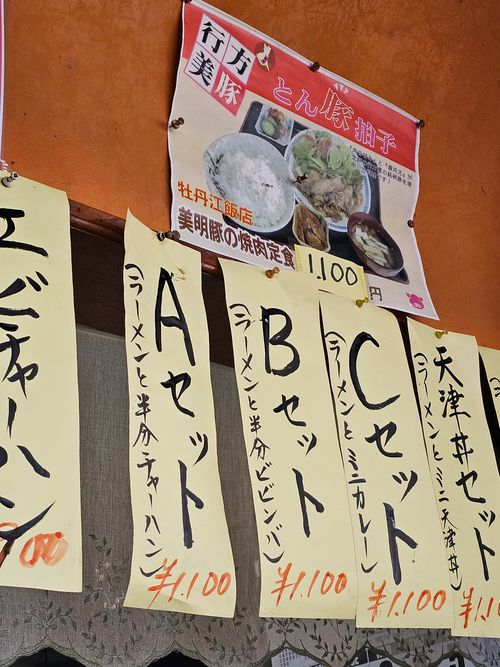 行方
美豚
とん豚拍子
牡丹江飯店
美明豚の焼肉定食
1,100
円
エビチャーハン
00
Aセット
(ラーメンと半分チャーハン)
¥1.100
Bセット
(ラーメンと半分ビビンバ)
¥1.100
Cセット
(ラーメンとミニカレー)
¥1.100
天津丼セット
(ラーメンとミニ天津丼)
¥1.100